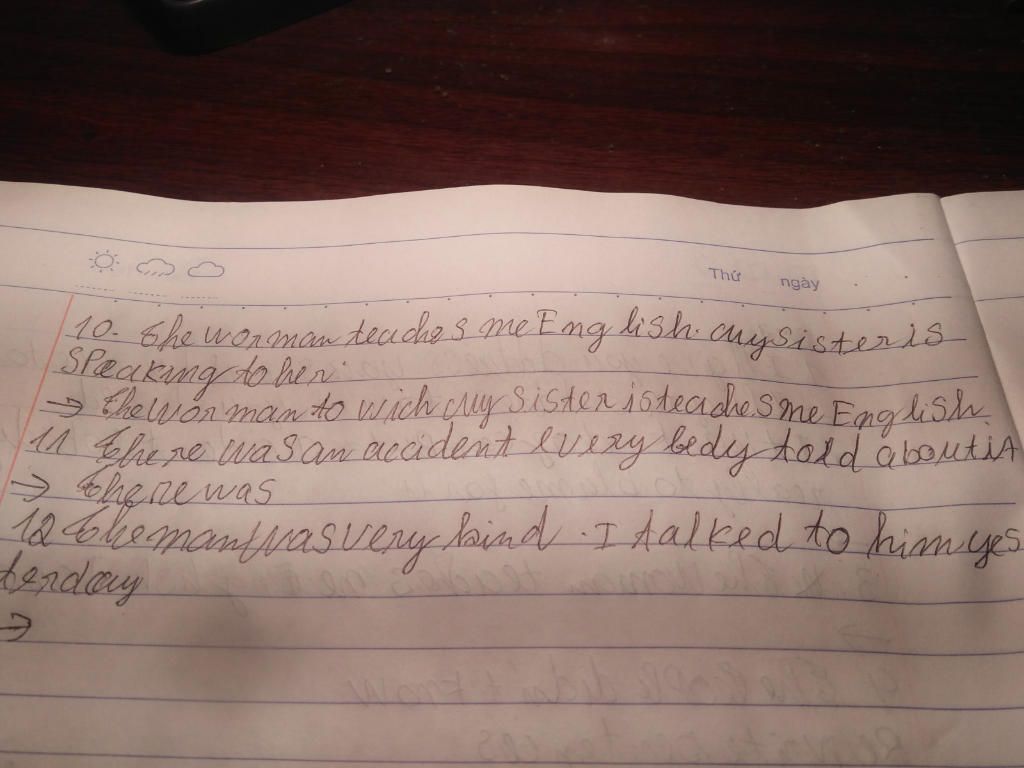 Thứ ngày
10. the worman teaches me English. my sister is
speaking to her.
→ the worman to wich my sister is teaches me English
11 there was an accident every body told about it
→ there was
12 the man was very kind. I talked to him yes
terday
→